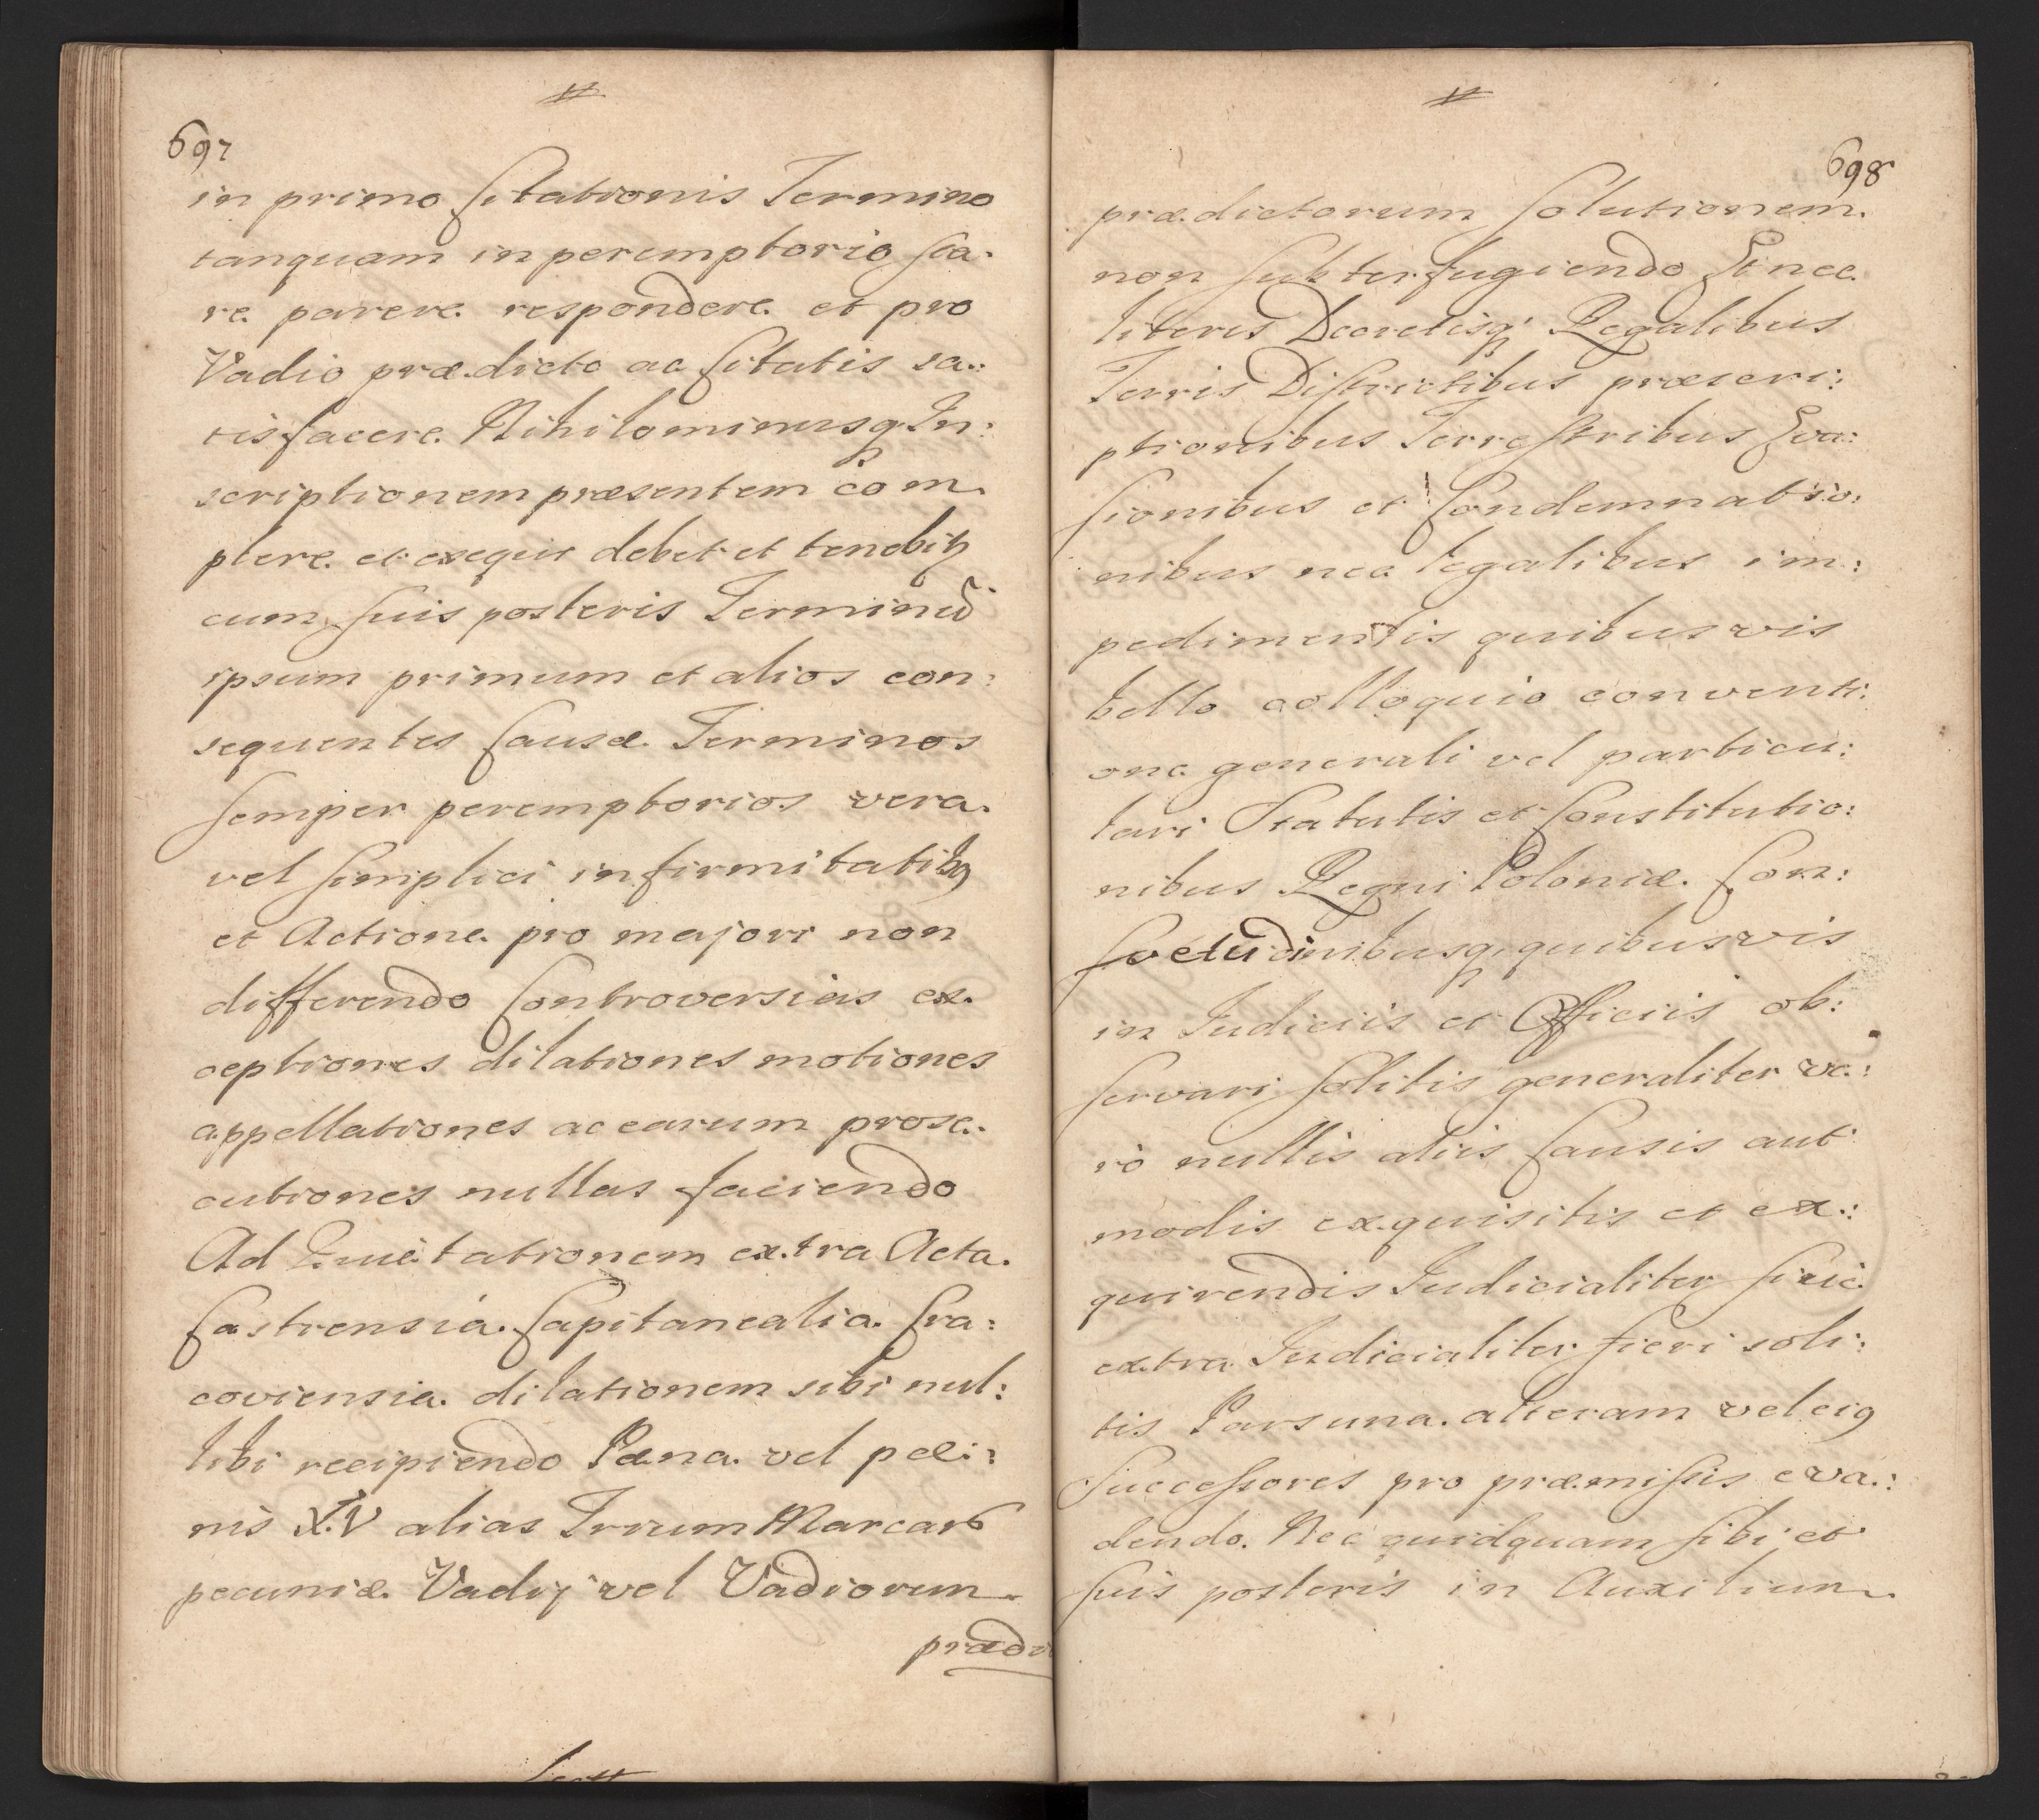 697
in primo Citationis Termino
tanquam in peremptorio sta-
re parere respondere et pro
Vadio prædicto ac Citatis sa-
tisfacere Nihilominusq In:
scriptionem præsentem com
plere et exequi debet et tenebitz
cum suis posteris Terminū
ipsum primum et alios con:
sequentes Causæ Terminos
semper peremptorios vera
vel simplici infirmitatibꝫ
et Actione pro majori non
differendo Controversias ex
ceptiones dilationes motiones
appellationes ac earum prose-
cutiones nullas faciendo
Ad extra Acta
Castrensia Capitanealia Cra:
coviensia dilationem sibi nul:
libi recipiendo Pæna vel pæ:
nis XV alias Trium Marcarū
pecuniæ Vadij vel Vadiorum
præd
698
prædictorum Solutionem
non subterfugiendo Et nec
literis Decretisq Regalibus
Terris Districtibus præscri:
ptionibus Terrestribus Eva:
sionibus et Condemnatio:
nibus nec legalibus im:
pedimentis quibusvis
bello colloquio conventi:
one generali vel particu:
lari Statutis et Constitutio:
nibus Regni Poloniæ Con:
svetudinibusq quibusvis
in Iudiciis et Officiis ob:
servari solitis generaliter ve:
ro nullis aliis Causis aut
modis exquisitis et ex:
quirendis Iudicialiter sive
extra Iudicialiter fieri soli:
tis Pars una alteram vel eiꝰ
Successores pro præmissis eva:
dendo. Nec quidquam sibi et
suis posteris in Auxilium